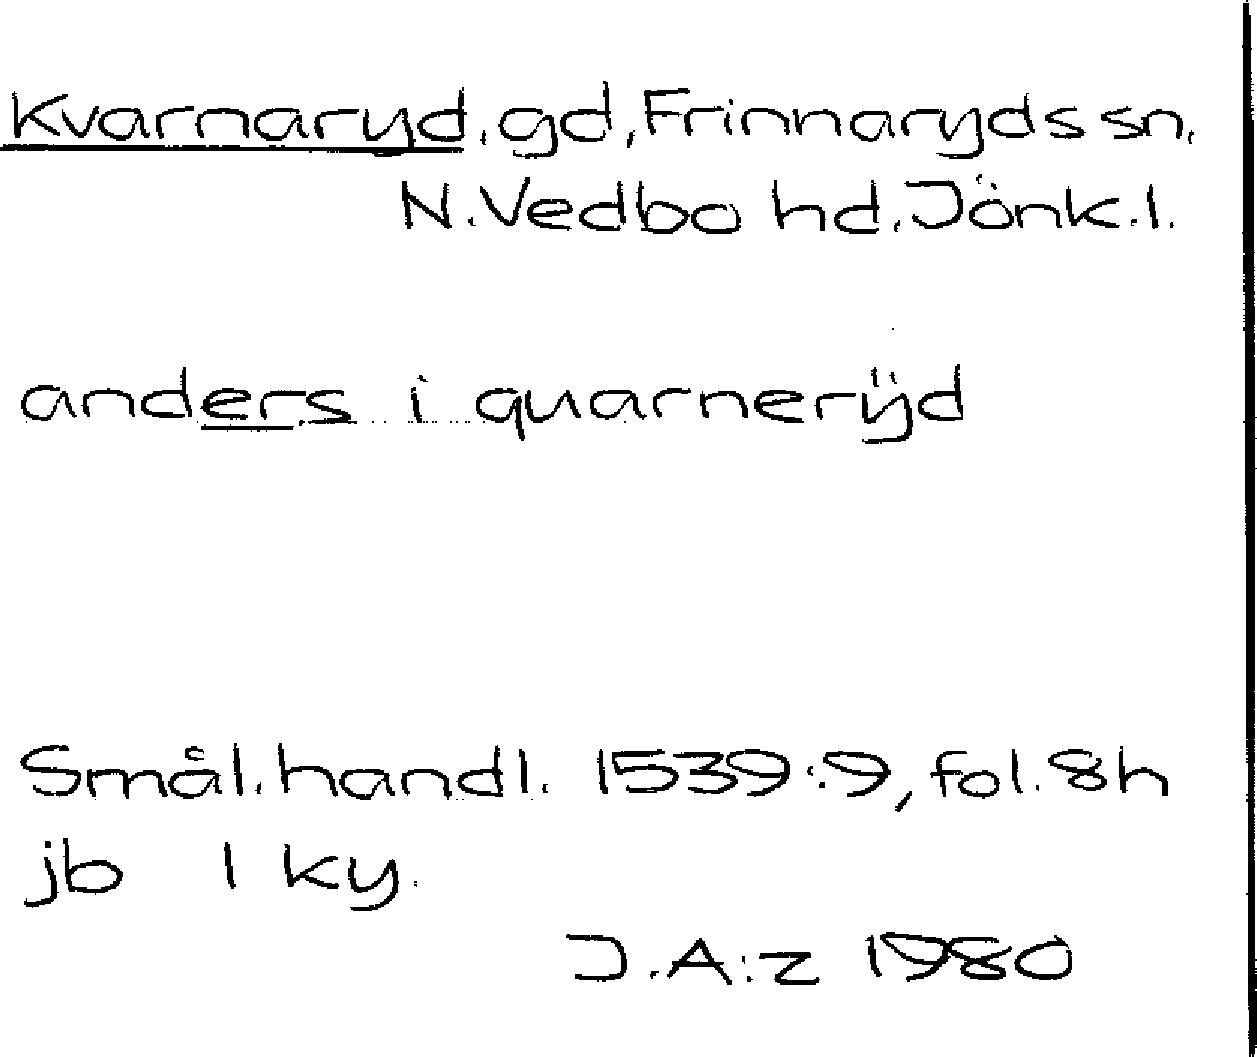 Kvarnaryd, gd, Frinnaryds sn,
N. Vedbo hd, Jönk. l.
anders i quarnerÿd
Smål. handl. 1539:9, fol. 8h
jb 1 ky.
J.A:z 1980